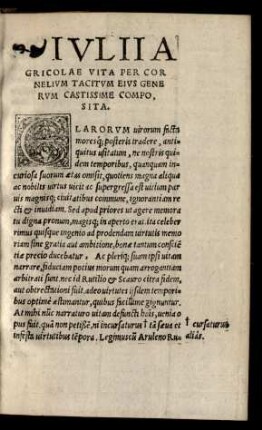 IVLII A
GRICOLAE VITA PER COR
NELIVM TACITVM EIVS GENE
RVM CASTISSIME COMPO,
SITA.
CLARORVM uirorum facta
moresq́; posteris tradere, anti
quitus usitatum, ne nostris qui
dem temporibus, quanquam in
curiosa suorum ætas omisit, quotiens magna aliqua
ac nobilis uirtus uicit ac supergressa est uitium par
uis magnisq; ciuitatibus commune, ignorantiam re
cti & inuidiam. Sed apud priores ut agere memora
tu digna pronum, magisq; in aperto erat, ita celeber
rimus quisque ingenio ad prodendam uirtutis memo
riam sine gratia aut ambitione, bonæ tantum conscie͂
tiæ precio ducebatur. Ac pleriq; suam ipsi uitam
narrare, fiduciam potius morum quam arrogantiam
arbitrati sunt. nec id Rutilio & Scauro citra fidem,
aut obtrectationi fuit. adeo uirtutes iisdem tempori
bus optime æstimantur, quibus facillime gignuntur.
At mihi nu͂c narraturo uitam defuncti hois, uenia o
pus fuit. qua͂ non petisse͂, ni incursaturus † ta͂ sæua et
infesta uirtutibus te͂pora. Legimus cu͂ Aruleno Ru-
† cursaturus
aliâs.